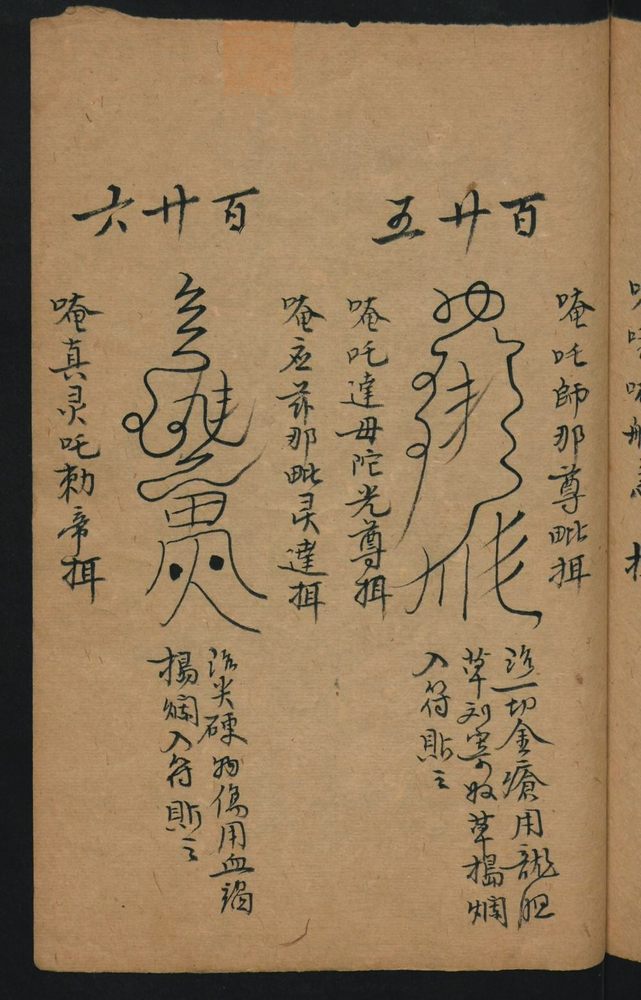 百廿五
唵吒師那尊毗揖
唵吒達毋陀光尊揖
治一切金瘡用龍胆
草刘寄奴草搗爛
入符貼之
百廿六
唵应茀那毗灵達揖
唵真灵吒勅帝揖
治尖硬物傷用血竭
搗爛入符貼之